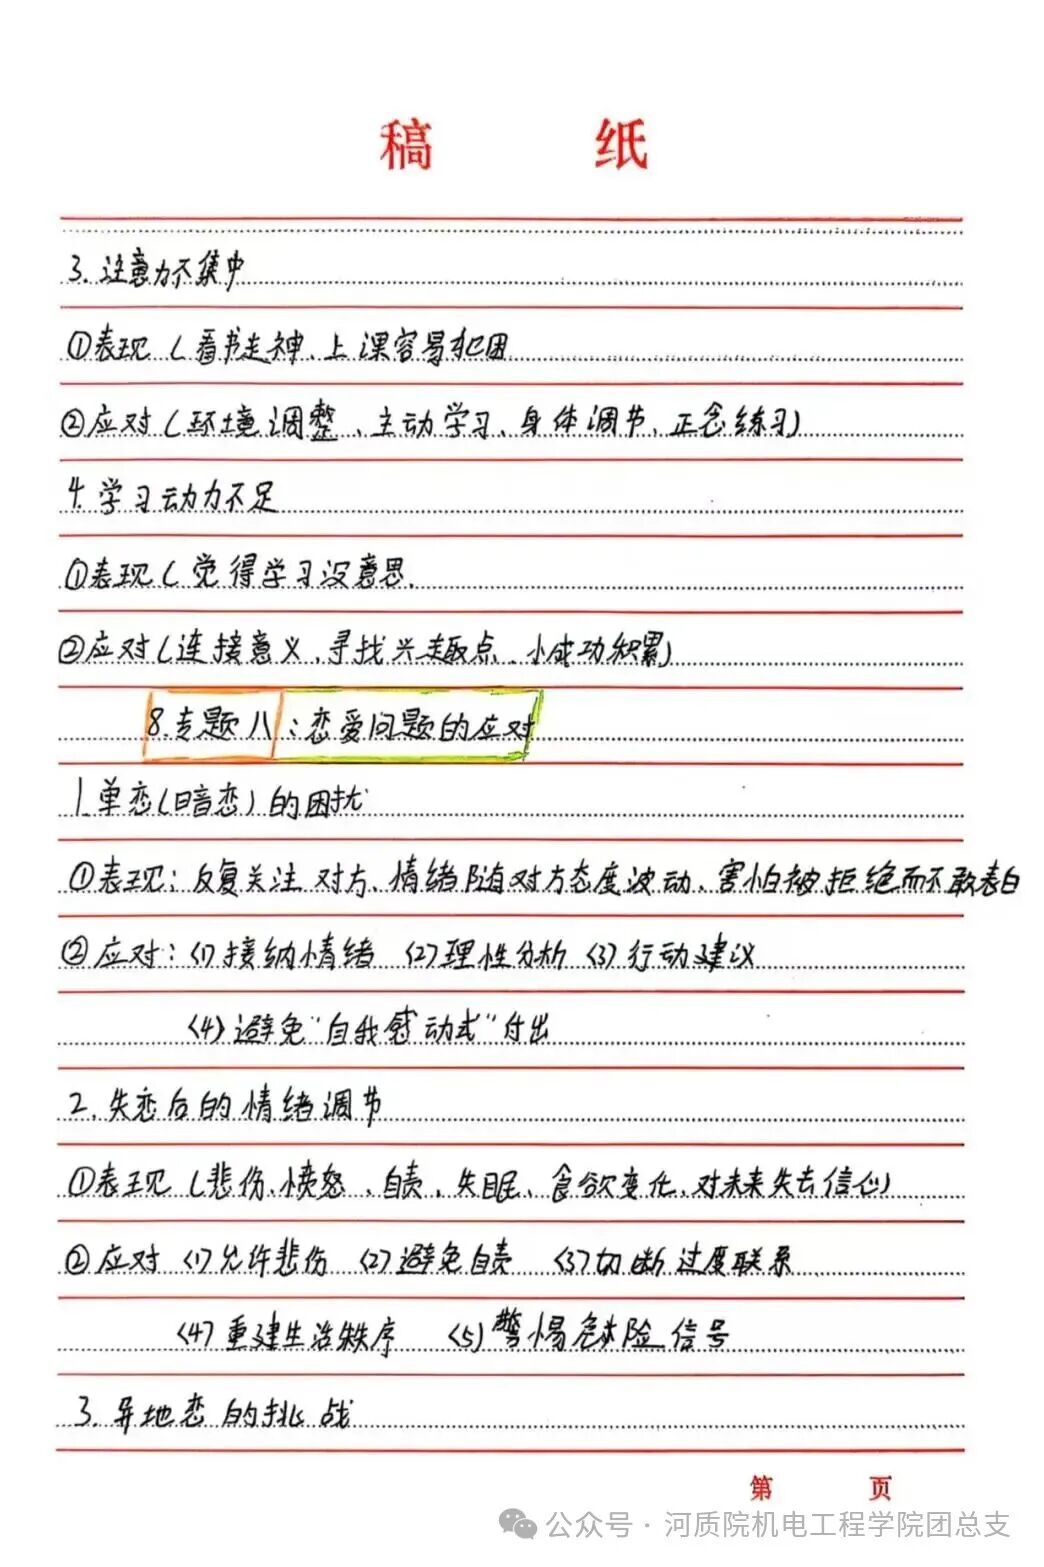 稿 纸
3. 注意力不集中
①表现（看书走神、上课容易犯困
②应对（环境调整、主动学习、身体调节、正念练习）
4. 学习动力不足
①表现（觉得学习没意思.
②应对（连接意义、寻找兴趣点、小成功积累）
8.专题八：恋爱问题的应对
1.单恋（暗恋）的困扰
①表现：反复关注对方、情绪随对方态度波动、害怕被拒绝而不敢表白
②应对：(1)接纳情绪 (2)理性分析 (3)行动建议
(4)避免“自我感动式”付出
2.失恋后的情绪调节
①表现（悲伤、愤怒、自责、失眠、食欲变化、对未来失去信心）
②应对 (1)允许悲伤 (2)避免自责 (3)切断过度联系
(4)重建生活秩序 (5)警惕危险信号
3.异地恋的挑战
第 页
公众号·河质院机电工程学院团总支